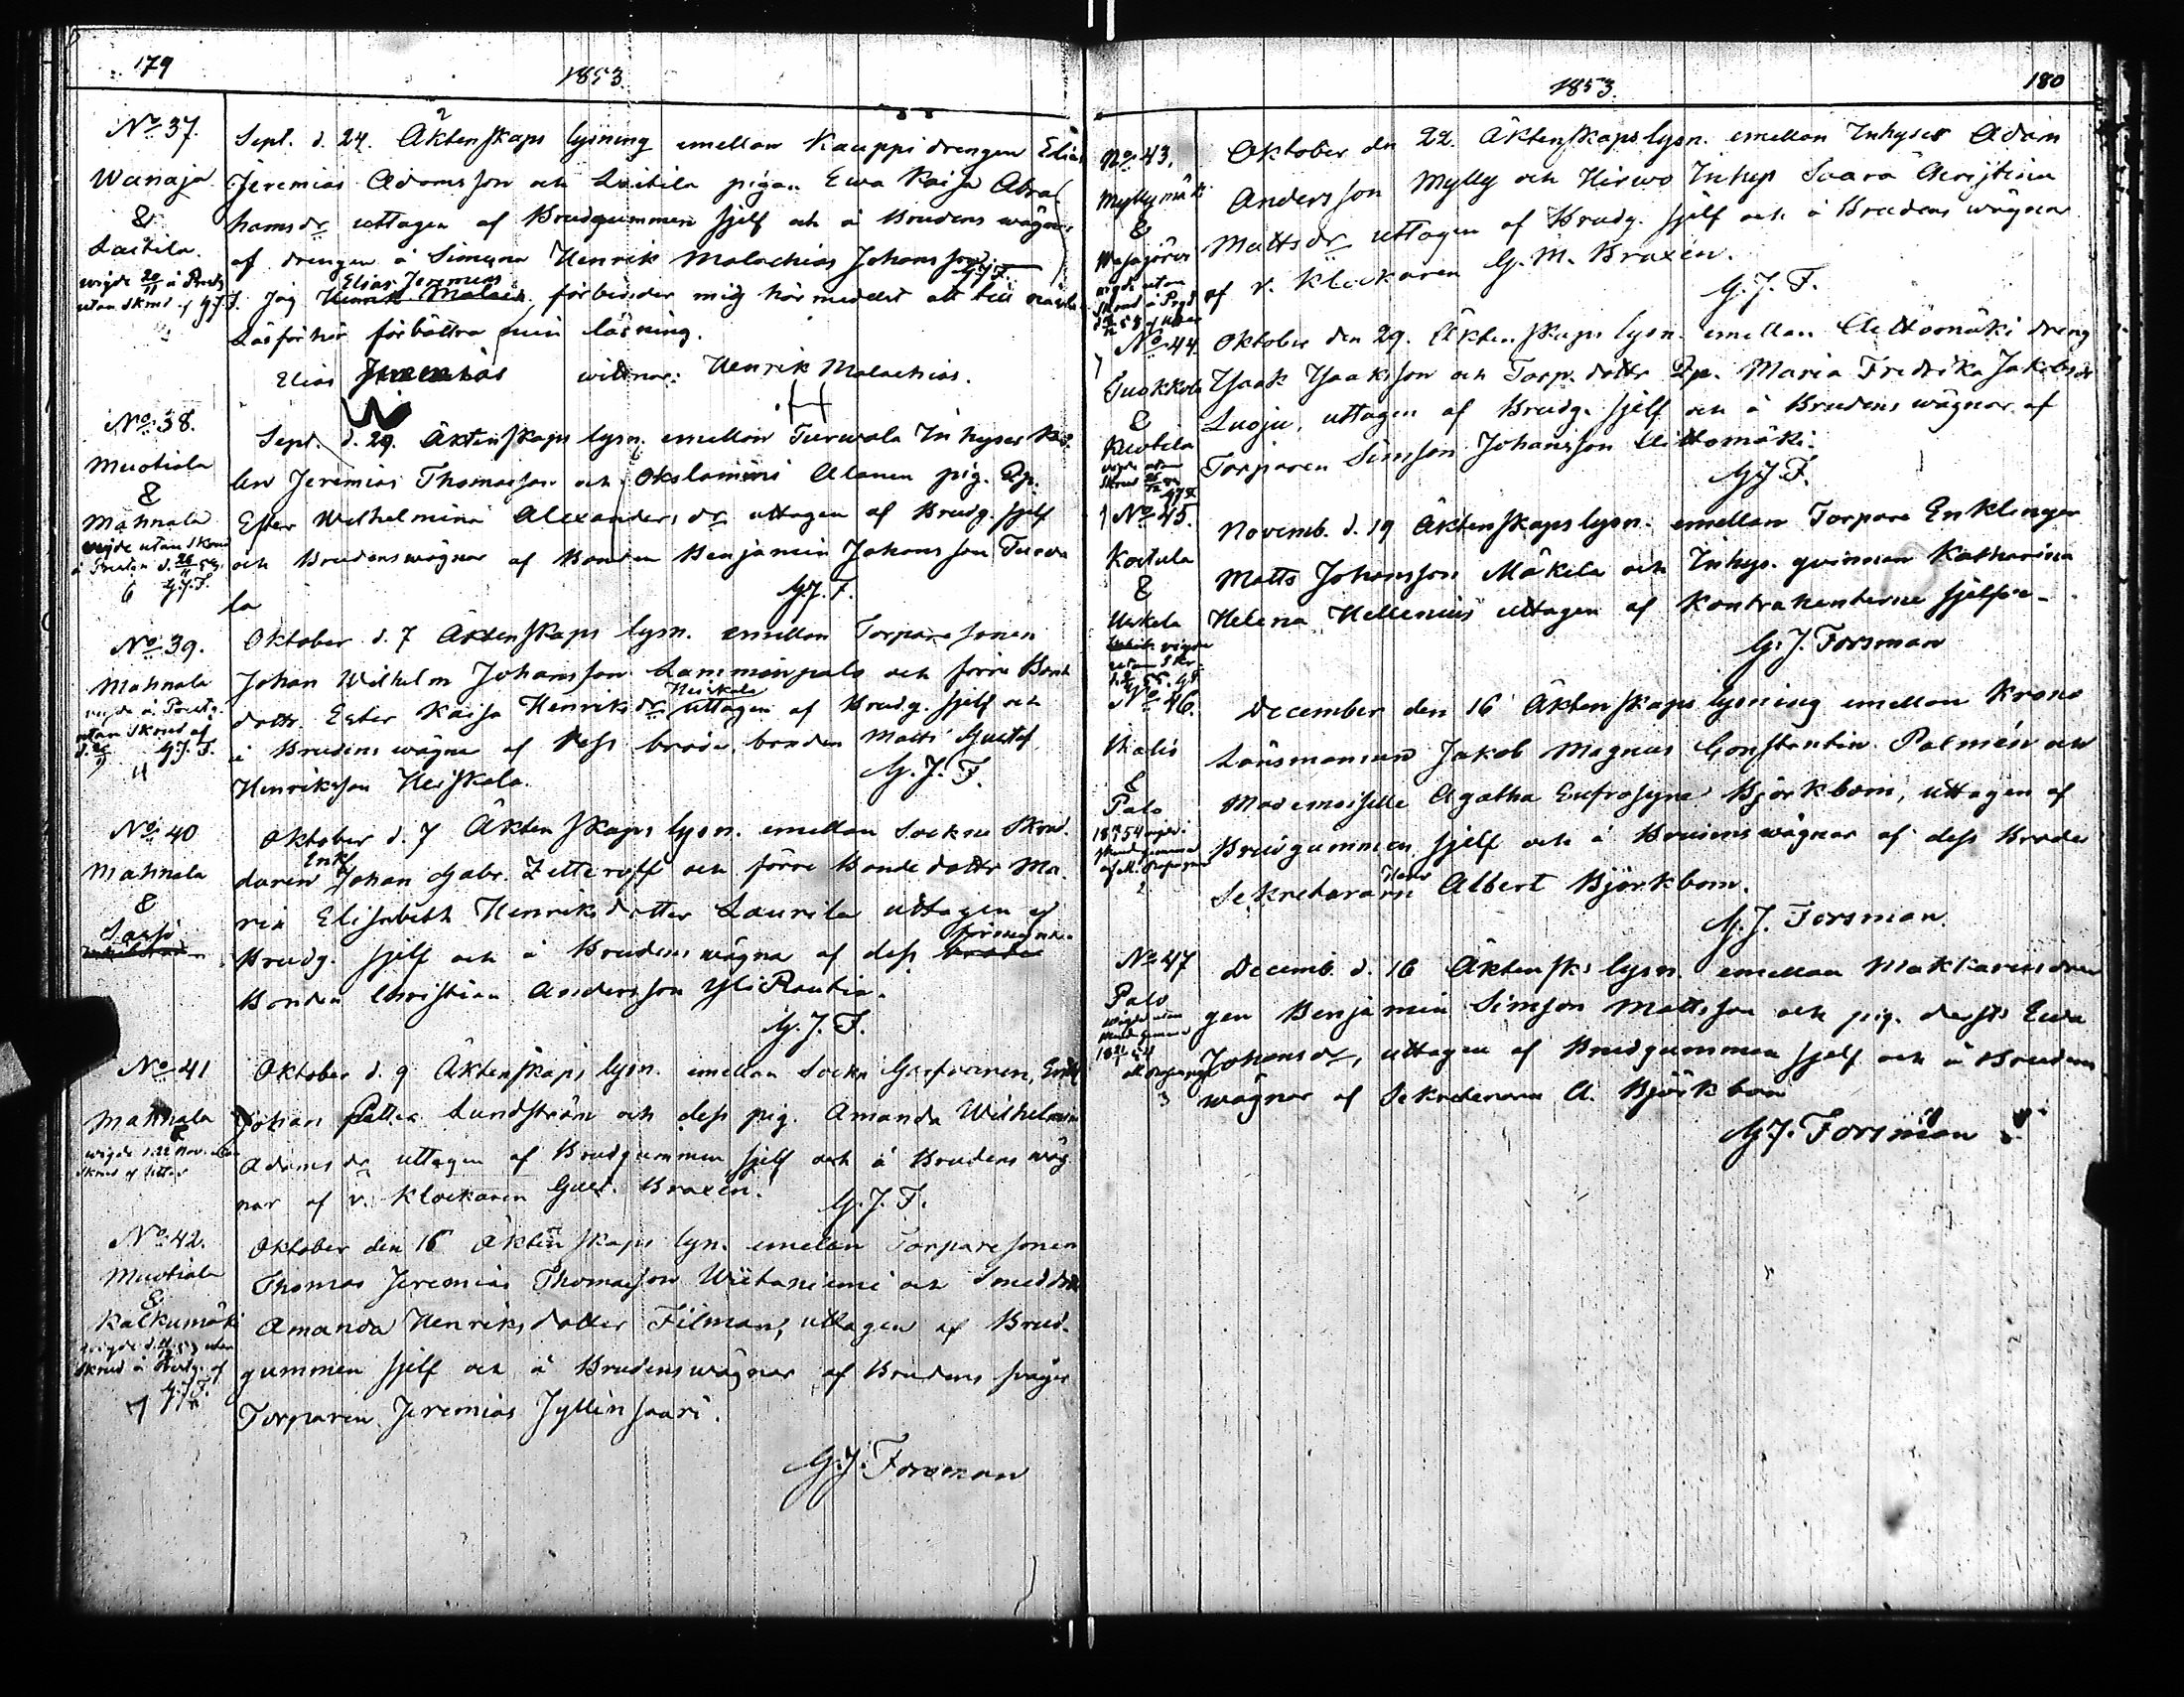 179
1853.
No 37.
Wanaja
&
Laitila.
wigde 20/11 å Prestg.
utan skrud af G.J.F.
Sept. d. 24. Äktenskaps lysning emellan Kauppi drengen Elias
Jeremias Adamsson och Laitila pigan Ewa Kaisa Abra
hamsdr uttagen af Brudgummen sjelf och å Brudens wägnar
af drengen å Simuna Henrik Malachias Johansson. G.J.F.
Elias Jeremias
Jag Henrik Malach. förbinder mig härmedelst att till nästa
Läsförhör förbättra min läsning.
Elias Jeremias wittnar: Henrik Malachias.
No 38.
Muotiala
&
Mahnala
wigde utan Skrud
G.J.F.
6
Sept. d. 29. Äktenskaps lysn. emellan Turwala Inhyses
len Jeremias Thomasson och Alanen pig. Qp.
Ester Wilhelmina Alexanders dr uttagen af Brudg. sjelf
och Brudens wägnar af Bonden Benjamin Johansson Turwa
la
G.J.F.
No 39.
Mahnala
wigde å Prestg.
utan Skrud af
G.J.F.
Oktober d. 7 Äktenskaps lysn. emellan Torpare sonen
Johan Wilhelm Johansson Lamminpalo och förre Bond
Heiskala
dottr. Ester Kaisa Henriks dr uttagen af Brudg. sjelf och
å Brudens wägna af dess broder, bonden Matts Gustaf
Henriksson Heiskala.
G.J.F.
No 40
Mahnala
&
Sasi
Oktober d. 7 Äktenskaps lysn. emellan Sockne Skräd
Enkl
daren Johan Gabr. Zitteroff och förre Bonde dottr Ma.
ria Elisabeth Henriksdotter Laurila uttagen af
förmynd.
Brudg. sjelf och å Brudens wägna af dess broder
Bonden Christian Andersson Yli Rautia.
G.J.F.
No 41
Mahnala
Oktober d. 9 Äktenskaps lysn. emellan Sockn Garfwaren, Enkl
Johan Petter Lundström och dess pig. Amanda Wilhelmina
Adams dr uttagen af Brudgummen sjelf och å Brudens wäg
nar af v. Klockaren Gust. Braxén.
G.J.F.
No 42.
Muotiala
&
Kalkumäki
utan
Skrud å Prestg. af
G.J.F.
7
Oktober den 16 Äktenskaps lyn. emelan Torparesonen
Thomas Jeremias Thomasson Wiitaniemi och Smeddr
Amanda Henriksdotter Filman, uttagen af Brud-
gummen sjelf och å Brudens wägnar af Brudens swåger
Torparen Jeremias Jyllinsaari.
G.J. Forsman
1853.
180
No 43.
Myllymäki
&
Oktober den 22. Äktenskaps lysn. emellan Inhyses Adam
Andersson Mylly och Hirwo Inhys Saara Christina
Mattsdr uttagen af Brudg. sjelf och å Brudens wägnar
af v. Klockaren G.M. Braxén.
G.J.F.
No 44.
&
Oktober den 29. Äktenskaps lysn. emellan dreng
Isaak Isaksson och Torp. dottr Qp. Maria Fredrika Jakobsdr
Luoju, uttagen af Brudg. sjelf och å Brudens wägnar af
Torparen Simson Johansson
G.J.F.
No 45.
&
Novemb. d. 19 Äktenskaps lysn. emellan Torpare Enklingen
Matts Johansson Mäkelä och Inhys. qvinnan Katharina
Helena Hellenius uttagen af Kontrahenterne sjelfve.
G.J. Forsman
No 46.
Wialis
&
Palo
December den 16 Äktenskaps lysning emellan Krono
Länsmannen Jakob Magnus Constantin Palmén och
Mademoiselle Agatha Eufrosyne Björkbom, uttagen af
Brudgummen sjelf och å Brudens wägnar af dess Broder
Herr
Sekreteraren Albert Björkbom.
G.J. Forsman
No 47
Palo
Decemb. d. 16 Äktensks lysn. emellan Makkarendren
gen Benjamin Simson Mattsson och pig. derst. Ewa
Johansdr, uttagen af Brudgummen sjelf och å Brudens
wägnar af Sekreteraren A. Björkbom
G.J. Forsman